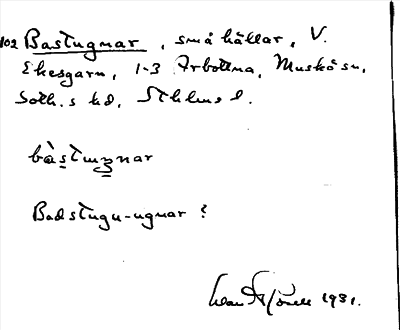 102 Bastugnar, små hällar, V.
Ekesgarn, 1-3 Arbottna, Muskö sn,
Soth.s hd, Sthlms l.
bàstuŋnar
Badstugu-ugnar?
1931.